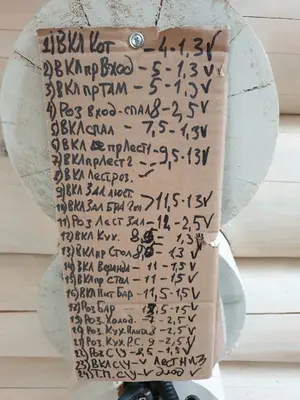 1) ВКЛ КОТ — 4-1,3 V
2) ВКЛ ПР ВХОД - 5 - 1,3 V
3) ВКЛ ПР ТАМ - 5 - 1,3 V
4) РОЗ ВХОД-СПАЛ 8-2,5 V
5) ВКЛ СПАЛ - 7,5-1,5 V
6) ВКЛ ПР ЛЕСТ 1
7) ВКЛ ПР ЛЕСТ 2 - 9,5-13 V
8) ВКЛ ЛЕСТ РОЗ.
9) ВКЛ ЗАЛ ЛЮСТ.
10) ВКЛ ЗАЛ БРА 2 >11,5-13 V
11) РОЗ ЛЕСТ ЗАЛ-12-2,5 V
12) ВКЛ КУХ. 8, 1,3 V
13) ВКЛ ПР СТОЛ 8, 1,3 V
14) ВКЛ ВЕРАНДА - 11 - 1,5 V
15) ВКЛ ПР СТОЛ - 11 - 1,5 V
16) ВКЛ БАР - 11,5-1,5 V
17) РОЗ БАР
18) РОЗ. ХОЛОД. - 7 - 2,5 V
19) РОЗ. КУХ. ПЛИТА - 2,5 V
РОЗ. КУХ. Р.С. 9 - 2,5 V
22) РОЗ С/У - 8,5 - 1,5 V
23) ВКЛ С/У - V ЛЕСТ НИЗ
24) Т.П. С/У - V